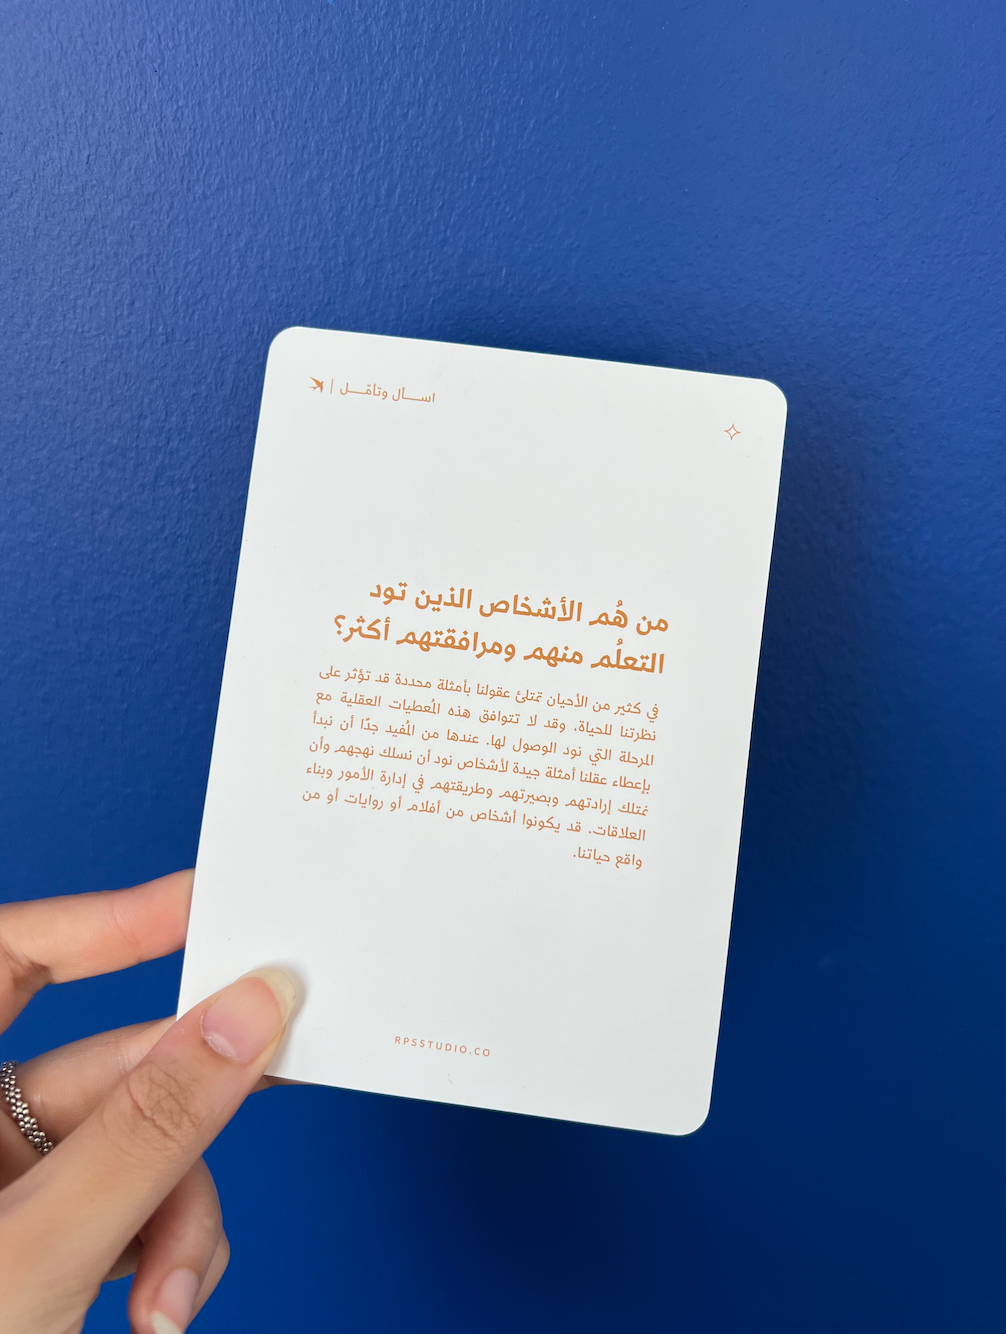 اســأل وتأمّــل |
من هُم الأشخاص الذين تود
التعلُم منهم ومرافقتهم أكثر؟
في كثير من الأحيان تمتلئ عقولنا بأمثلة محددة قد تؤثر على
نظرتنا للحياة، وقد لا تتوافق هذه المُعطيات العقلية مع
المرحلة التي نود الوصول لها. عندها من المُفيد جدًا أن نبدأ
بإعطاء عقلنا أمثلة جيدة لأشخاص نود أن نسلك نهجهم وأن
نمتلك إرادتهم وبصيرتهم وطريقتهم في إدارة الأمور وبناء
العلاقات. قد يكونوا أشخاص من أفلام أو روايات أو من
واقع حياتنا.
RPSSTUDIO.CO